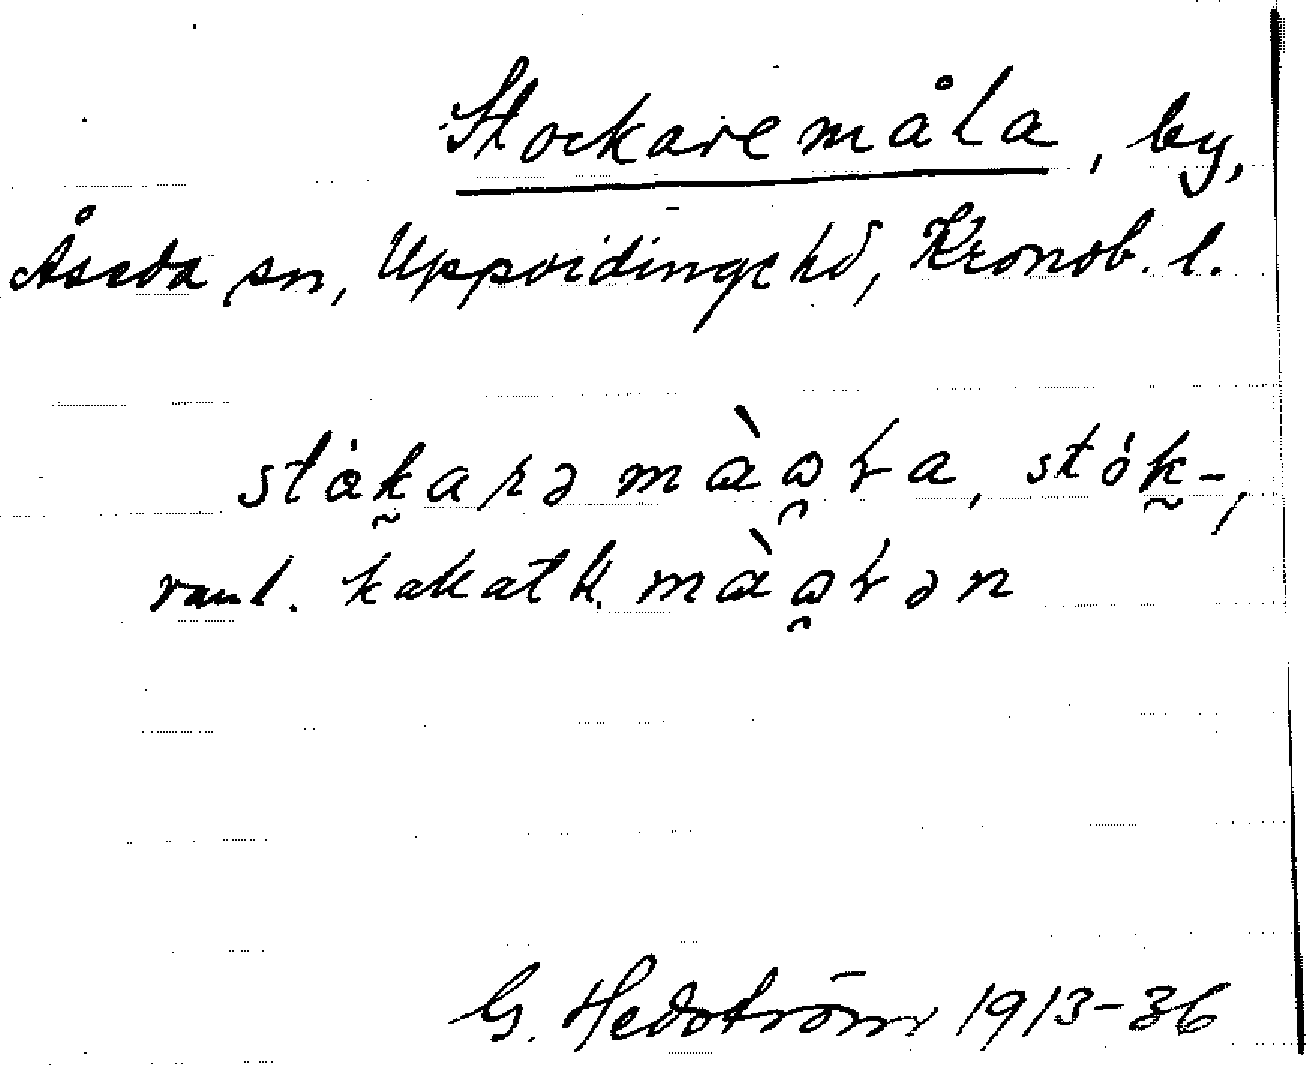 Stockaremåla, by,
Åseda sn, Uppvidinge hd, Kronob. l.
stȧk̰arə mȧ̀ɷ̯ɫa, stȯk̰-,
vanl. mȧ̀ɷ̯ɫən
G. Hedström 1913-36